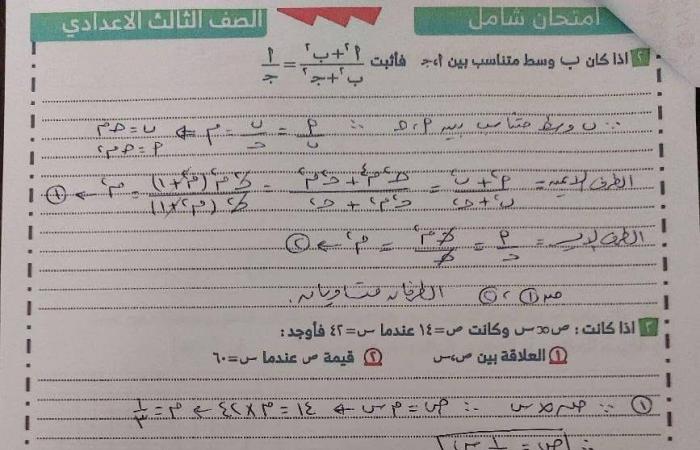 امتحان شامل
الصف الثالث الاعدادي
٢ اذا كان ب وسط متناسب بين أ،ج فأثبت أ٢+ب٢ / ب٢+ج٢ = أ / ج
∵ ب وسط متناسب بين أ، ج ∴ أ/ب = ب/ج = م ⇐ ب = جم
أ = جم٢
الطرف الايمن = أ٢+ب٢ / ب٢+ج٢ = ج٢م٤ + ج٢م٢ / ج٢م٢ + ج٢ = ج٢م٢(م٢+١) / ج٢(م٢+١) = م٢ ← ١
الطرف الايسر = أ/ج = جم٢/ج = م٢ ← ٢
من ١، ٢ الطرفان متساويان.
٣ اذا كانت : ص∝س وكانت ص=١٤ عندما س=٤٢ فأوجد :
١ العلاقة بين ص،س ٢ قيمة ص عندما س=٦٠
١ ∵ ص∝س ∴ ص = م س ← ١٤ = م×٤٢ ← م = ١/٣
∴ ص = ١/٣ س